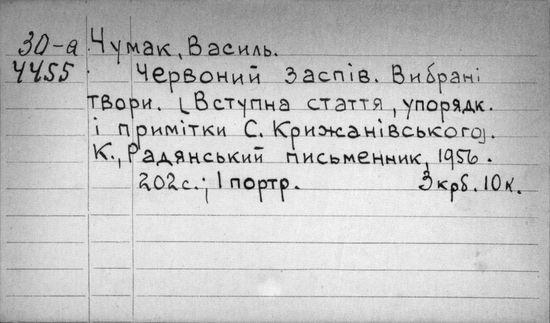 30-а Чумак, Василь.
4455 Червоний заспів. Вибрані
твори. [Вступна стаття, упорядк.
і примітки С. Крижанівського].
К., Радянський письменник, 1956.
202 с.; 1 портр. 3 крб. 10 к.